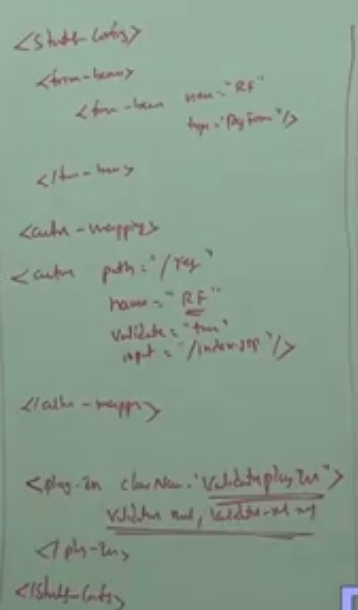 <Struts-Config>
<form-beans>
<form-bean name="RF"
type="RegForm"/>
</form-beans>
<action-mappings>
<action path="/reg"
name="RF"
validate="true"
input="/index.jsp"/>
</action-mappings>
<plug-In className="ValidatorPlugIn">
Validation.xml,
</plug-In>
</Struts-Config>